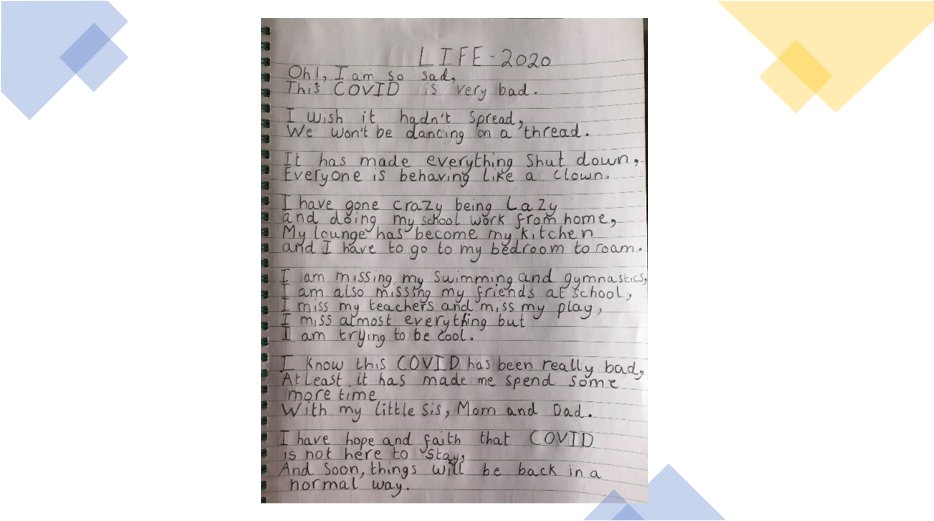 LIFE-2020
Oh!, I am so sad,
This COVID is very bad.
I wish it hadn't spread,
We won't be dancing on a thread.
It has made everything Shut down,
Everyone is behaving like a clown.
I have gone crazy being Lazy
and doing my school work from home,
My lounge has become my kitchen
and I have to go to my bedroom to roam.
I am missing my Swimming and gymnastics,
I am also missing my friends at school,
I miss my teachers and miss my play,
I miss almost everything but
I am trying to be cool.
I know this COVID has been really bad,
Atleast it has made me spend some
more time
With my little sis, Mom and Dad.
I have hope and faith that COVID
is not here to stay,
And Soon, things will be back in a
normal way.